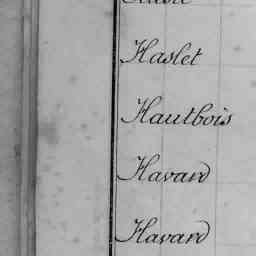 Haslet
Hautbois
Havard
Havard